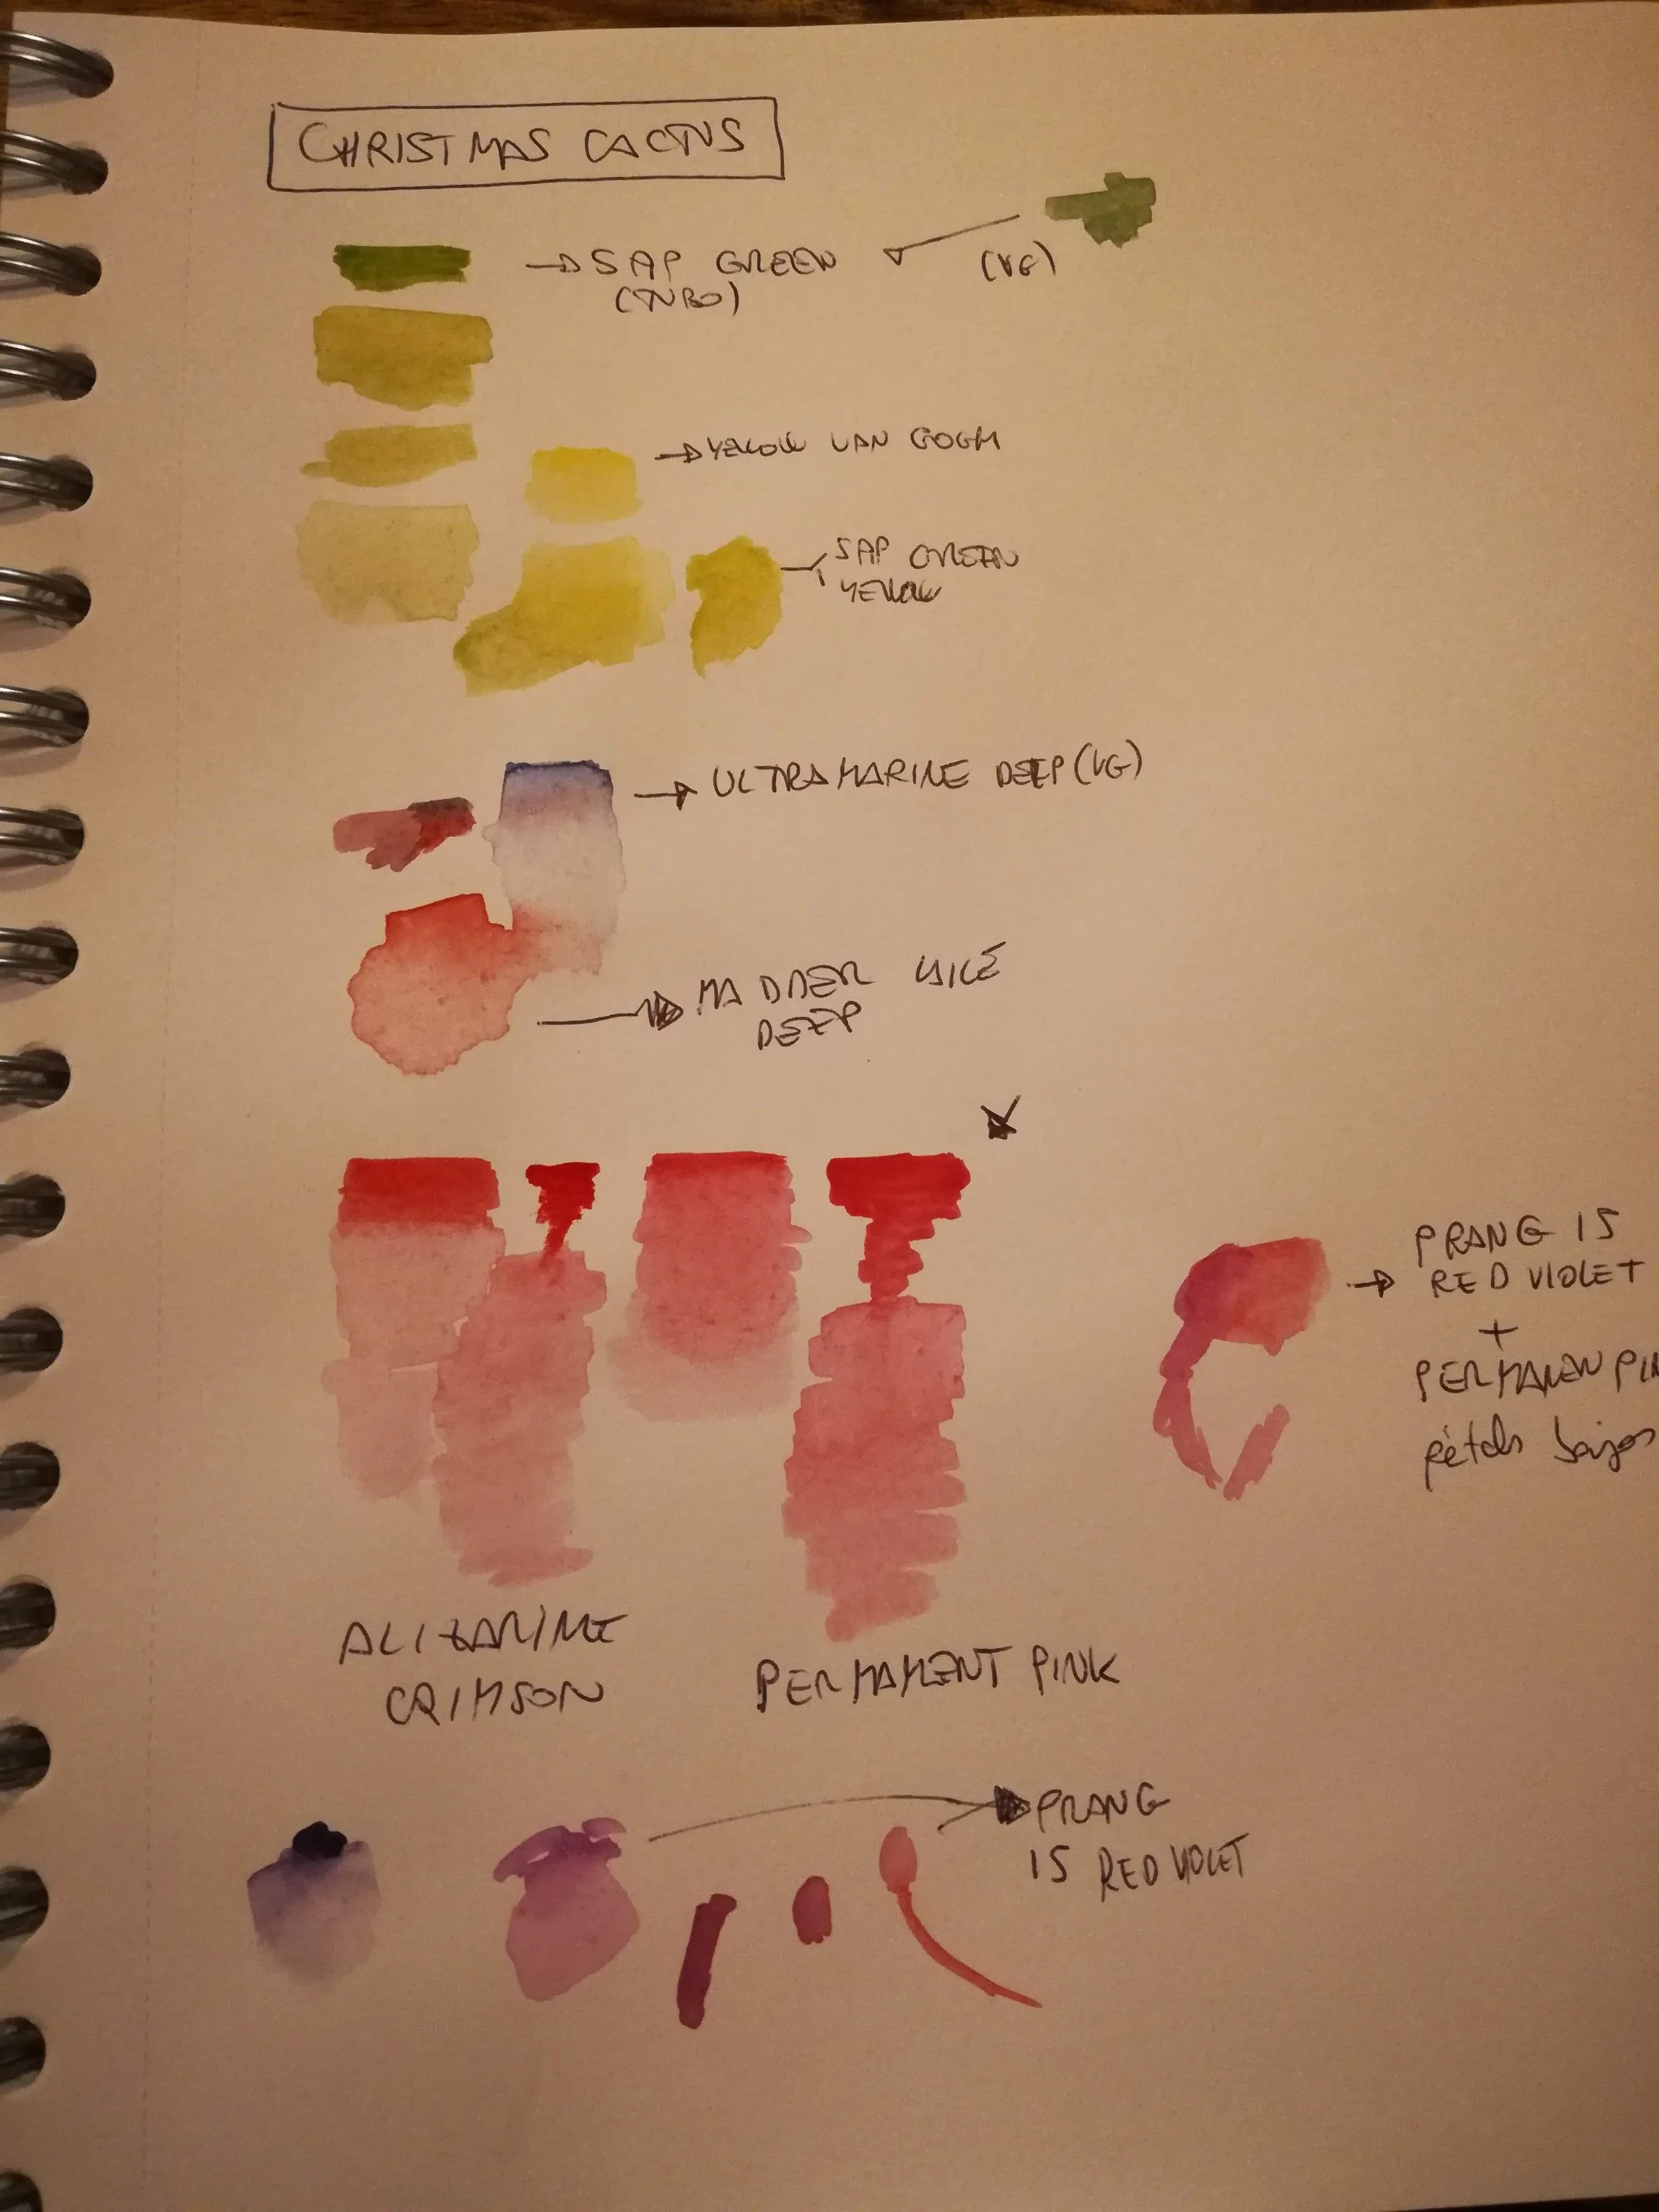 CHRISTMAS CACTUS
SAP GREEN (VG)
(TUBO)
YELLOW VAN GOGH
SAP GREEN
YELLOW
ULTRAMARINE DEEP (VG)
MADDER LAKE
DEEP
PRANG IS
RED VIOLET
+
PERMANEN PIN
pétals bajos
ALIZARINE
CRIMSON
PERMANENT PINK
PRANG
IS RED VIOLET